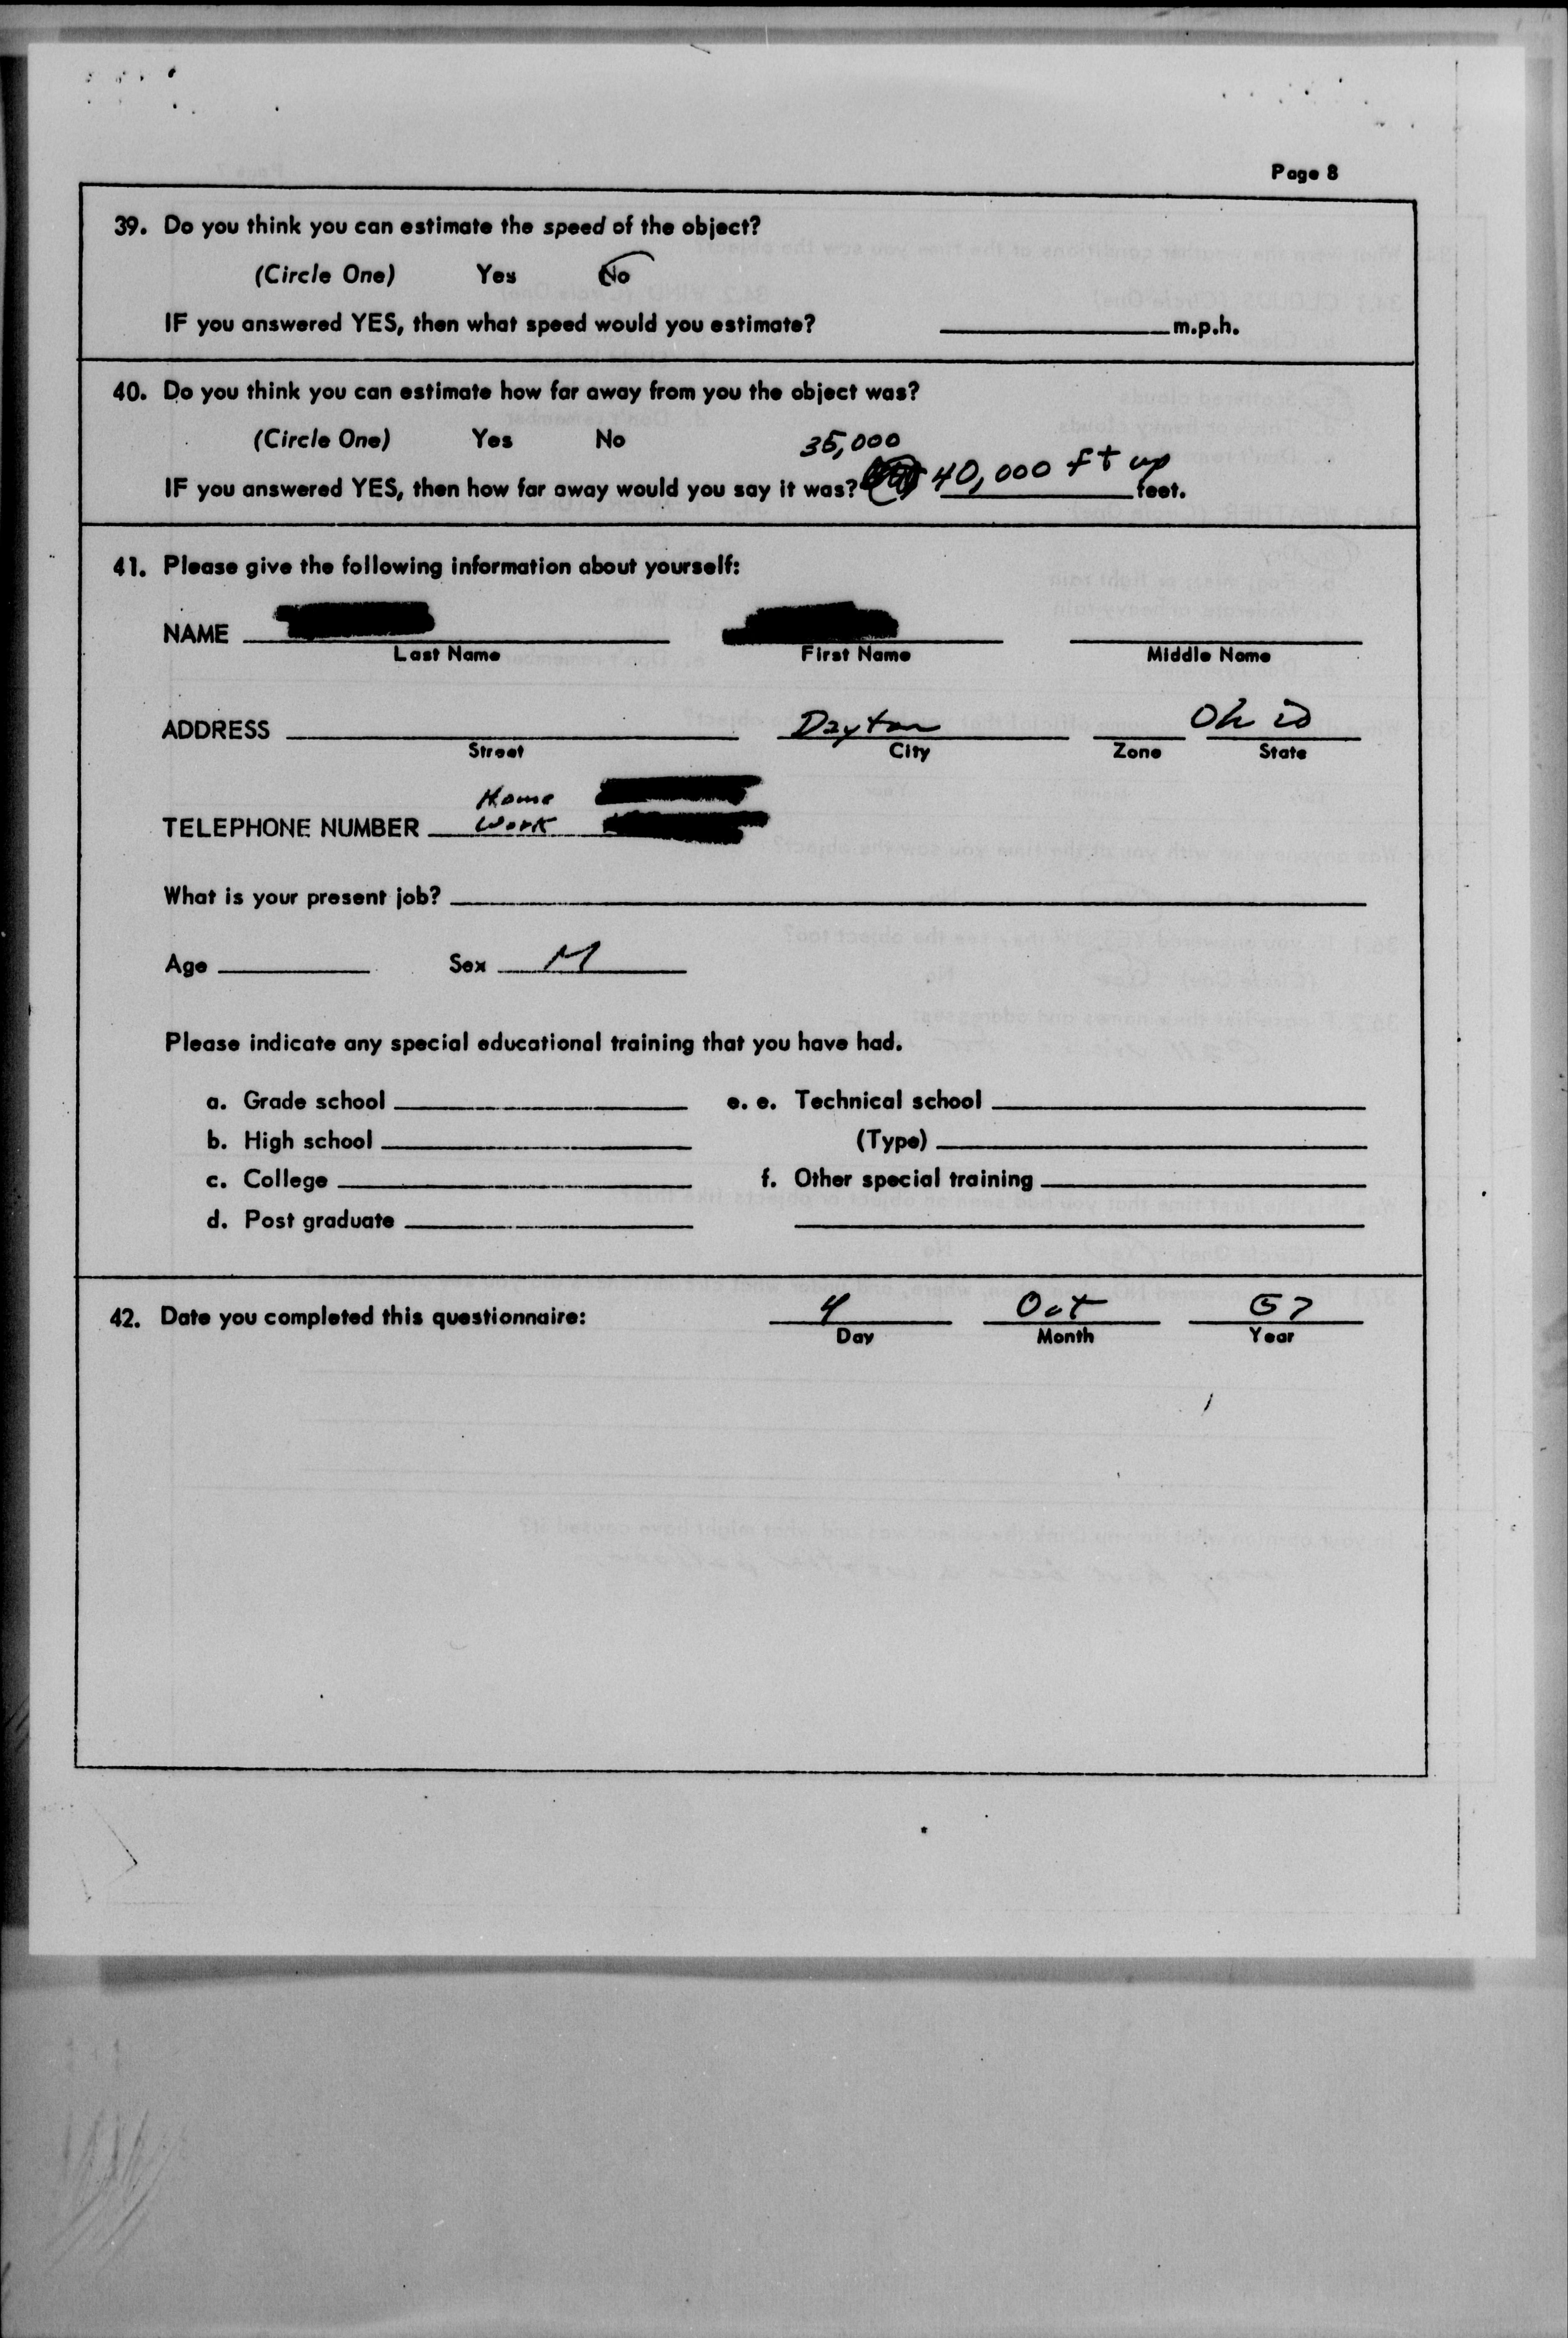 Page 8
39. Do you think you can estimate the speed of the object?
(Circle One) Yes No
IF you answered YES, then what speed would you estimate? m.p.h.
40. Do you think you can estimate how far away from you the object was?
(Circle One) Yes No
35,000
IF you answered YES, then how far away would you say it was? 40,000 ft up feet.
41. Please give the following information about yourself:
NAME
Last Name First Name Middle Name
ADDRESS Dayton Ohio
Street City Zone State
Home
TELEPHONE NUMBER Work
What is your present job?
Age Sex M
Please indicate any special educational training that you have had.
a. Grade school e. e. Technical school
b. High school (Type)
c. College f. Other special training
d. Post graduate
42. Date you completed this questionnaire: 4 Oct
Day Month Year